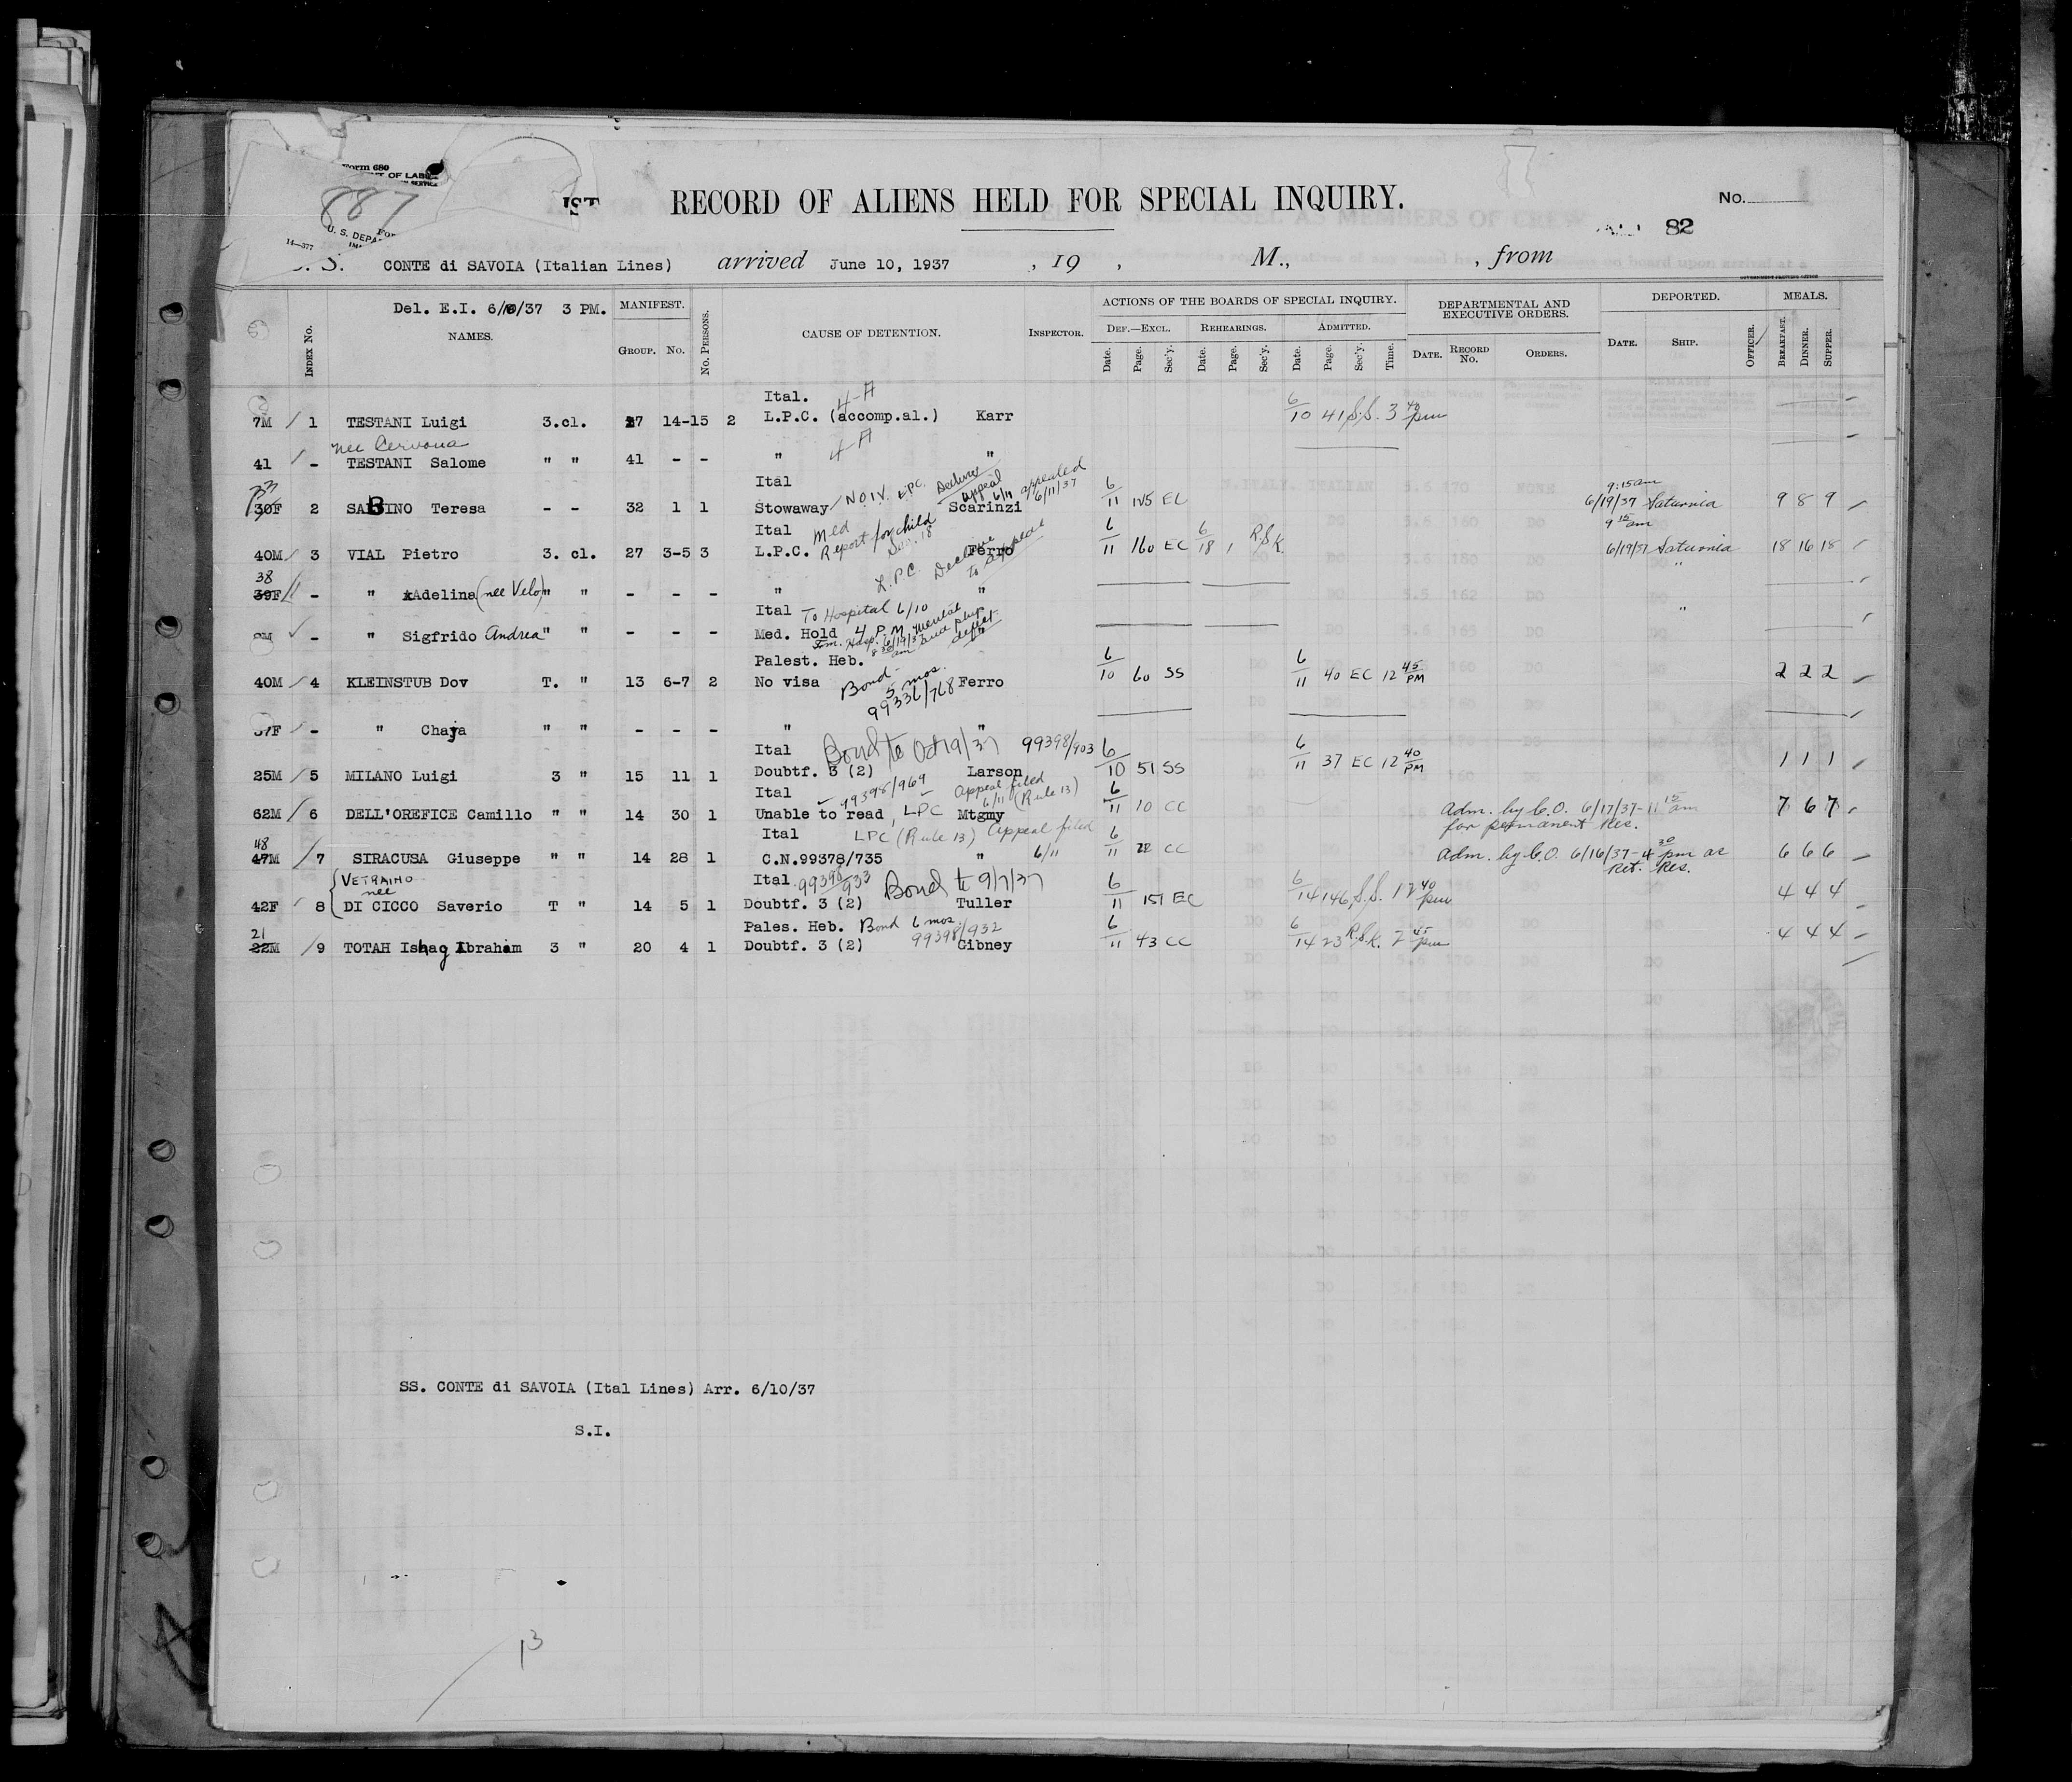 Form 680
OF LABOR
887
U. S. DEPA
14—377
IST RECORD OF ALIENS HELD FOR SPECIAL INQUIRY. No.
82
S. CONTE di SAVOIA (Italian Lines) arrived June 10, 1937 , 19 , M., , from
Del. E.I. 6/ /37 3 PM. MANIFEST. ACTIONS OF THE BOARDS OF SPECIAL INQUIRY. DEPARTMENTAL AND EXECUTIVE ORDERS. DEPORTED. MEALS.
INDEX No. NAMES. GROUP. No. No. PERSONS. CAUSE OF DETENTION. INSPECTOR. DEF.—EXCL. REHEARINGS. ADMITTED.
Date. Page. Sec'y. Date. Page. Sec'y. Date. Page. Sec'y. Time. DATE. RECORD No. ORDERS. DATE. SHIP. OFFICER. BREAKFAST. DINNER. SUPPER.
Ital. 4-A
7M / 1 TESTANI Luigi 3.cl. 27 14-15 2 L.P.C. (accomp.al.) Karr 6/10 41 S.S. 3 40 pm
nee Cervona 4-A
41 / - TESTANI Salome " " 41 - - " "
Ital No IV. LPC. Decline appeal 6/11 appealed 6/11/37 9:15am
30F 2 SABINO Teresa - - 32 1 1 Stowaway Scarinzi 6/11 125 EC 6/19/37 Saturnia 9 8 9
Ital Med Report for child Jun. 18 9 15 am
40M / 3 VIAL Pietro 3. cl. 27 3-5 3 L.P.C. Ferro 6/11 160 EC 6/18 1 R.S.K. 6/19/37 Saturnia 18 16 18
38 L.P.C. Decline to appeal "
39F / - " Adelina (nee Velo) " " - - - " "
Ital To Hospital 6/10 "
- " Sigfrido Andrea " " - - - Med. Hold 4 P.M. mental
Palest. Heb.
40M / 4 KLEINSTUB Dov T. " 13 6-7 2 No visa Bond 5 mos. 99336/768 Ferro 6/10 60 SS 6/11 40 EC 12 45 PM 2 2 2
37F - " Chaya " " - - - " "
Ital Bond to Oct 9/37 99398/903
25M / 5 MILANO Luigi 3 " 15 11 1 Doubtf. 3 (2) Larson 6/10 51 SS 6/11 37 EC 12 40 PM 1 1 1
Ital 99398/969 Appeal filed 6/11 (Rule 13)
62M / 6 DELL'OREFICE Camillo " " 14 30 1 Unable to read, LPC Mtgmy 6/11 10 CC Adm. by C.O. 6/17/37-11 15 am for permanent Res. 7 6 7
48 Ital LPC (Rule 13) Appeal filed 6/11
47M / 7 SIRACUSA Giuseppe " " 14 28 1 C.N.99378/735 " 6/11 22 CC Adm. by C.O. 6/16/37-4 30 pm as Ret. Res. 6 6 6
VETRAINO nee Ital 99398/933 Bond to 9/7/37
42F 8 DI CICCO Saverio T " 14 5 1 Doubtf. 3 (2) Tuller 6/11 151 EC 6/14 146 S.S. 12 40 pm 4 4 4
21 Pales. Heb. Bond 6 mos. 99398/932
22M / 9 TOTAH Ishag Abraham 3 " 20 4 1 Doubtf. 3 (2) Gibney 6/11 43 CC 6/14 23 R.S.K. 2 45 pm 4 4 4
SS. CONTE di SAVOIA (Ital Lines) Arr. 6/10/37
S.I.
13